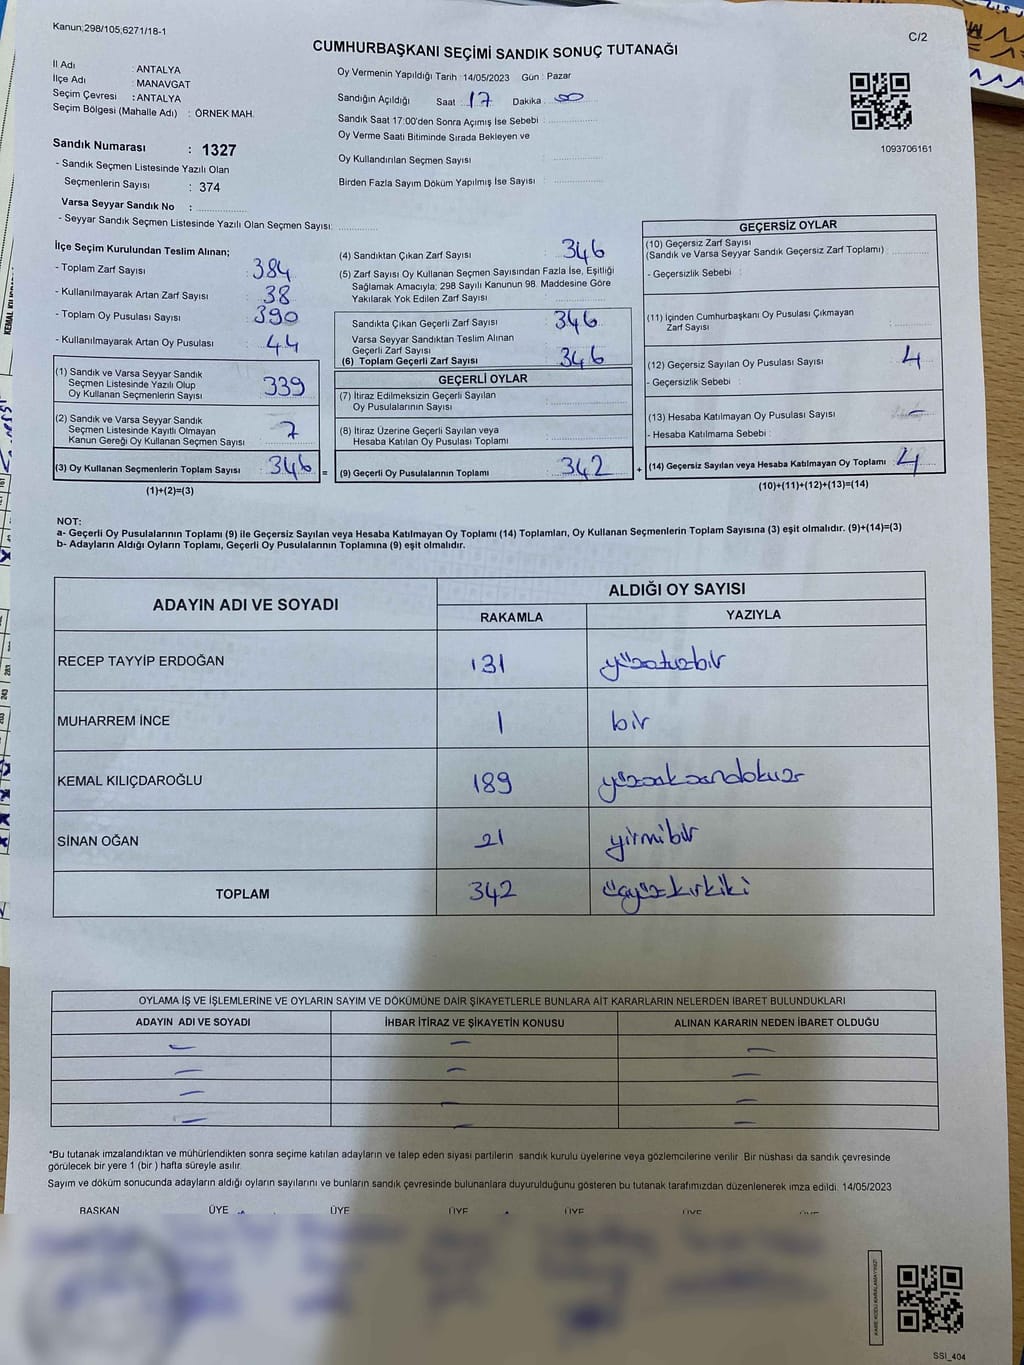 Kanun:298/105,6271/18-1
C/2
CUMHURBAŞKANI SEÇİMİ SANDIK SONUÇ TUTANAĞI
İl Adı : ANTALYA
İlçe Adı : MANAVGAT
Seçim Çevresi : ANTALYA
Seçim Bölgesi (Mahalle Adı) : ÖRNEK MAH.
Oy Vermenin Yapıldığı Tarih :14/05/2023 Gün : Pazar
Sandığın Açıldığı Saat 17 Dakika 00
Sandık Saat 17:00'den Sonra Açımış İse Sebebi :
Oy Verme Saati Bitiminde Sırada Bekleyen ve
Oy Kullandırılan Seçmen Sayısı :
Birden Fazla Sayım Döküm Yapılmış İse Sayısı :
1093706161
Sandık Numarası : 1327
- Sandık Seçmen Listesinde Yazılı Olan
Seçmenlerin Sayısı : 374
Varsa Seyyar Sandık No :
- Seyyar Sandık Seçmen Listesinde Yazılı Olan Seçmen Sayısı:
İlçe Seçim Kurulundan Teslim Alınan;
- Toplam Zarf Sayısı : 384
- Kullanılmayarak Artan Zarf Sayısı : 38
- Toplam Oy Pusulası Sayısı : 390
- Kullanılmayarak Artan Oy Pusulası : 44
(1) Sandık ve Varsa Seyyar Sandık
Seçmen Listesinde Yazılı Olup
Oy Kullanan Seçmenlerin Sayısı : 339
(2) Sandık ve Varsa Seyyar Sandık
Seçmen Listesinde Kayıtlı Olmayan
Kanun Gereği Oy Kullanan Seçmen Sayısı : 7
(3) Oy Kullanan Seçmenlerin Toplam Sayısı : 346 =
(1)+(2)=(3)
(4) Sandıktan Çıkan Zarf Sayısı : 346
(5) Zarf Sayısı Oy Kullanan Seçmen Sayısından Fazla İse, Eşitliği
Sağlamak Amacıyla; 298 Sayılı Kanunun 98. Maddesine Göre
Yakılarak Yok Edilen Zarf Sayısı :
Sandıkta Çıkan Geçerli Zarf Sayısı : 346
Varsa Seyyar Sandıktan Teslim Alınan
Geçerli Zarf Sayısı :
(6) Toplam Geçerli Zarf Sayısı : 346
GEÇERLİ OYLAR
(7) İtiraz Edilmeksizin Geçerli Sayılan
Oy Pusulalarının Sayısı :
(8) İtiraz Üzerine Geçerli Sayılan veya
Hesaba Katılan Oy Pusulası Toplamı :
(9) Geçerli Oy Pusulalarının Toplamı : 342 +
GEÇERSİZ OYLAR
(10) Geçersiz Zarf Sayısı
(Sandık ve Varsa Seyyar Sandık Geçersiz Zarf Toplamı) :
- Geçersizlik Sebebi :
(11) İçinden Cumhurbaşkanı Oy Pusulası Çıkmayan
Zarf Sayısı :
(12) Geçersiz Sayılan Oy Pusulası Sayısı : 4
- Geçersizlik Sebebi :
(13) Hesaba Katılmayan Oy Pusulası Sayısı : -
- Hesaba Katılmama Sebebi :
(14) Geçersiz Sayılan veya Hesaba Katılmayan Oy Toplamı : 4
(10)+(11)+(12)+(13)=(14)
NOT:
a- Geçerli Oy Pusulalarının Toplamı (9) ile Geçersiz Sayılan veya Hesaba Katılmayan Oy Toplamı (14) Toplamları, Oy Kullanan Seçmenlerin Toplam Sayısına (3) eşit olmalıdır. (9)+(14)=(3)
b- Adayların Aldığı Oyların Toplamı, Geçerli Oy Pusulalarının Toplamına (9) eşit olmalıdır.
ADAYIN ADI VE SOYADI ALDIĞI OY SAYISI
RAKAMLA YAZIYLA
RECEP TAYYİP ERDOĞAN 131 yüzotuzbir
MUHARREM İNCE 1 bir
KEMAL KILIÇDAROĞLU 189 yüzseksendokuz
SİNAN OĞAN 21 yirmibir
TOPLAM 342 üçyüzkırkiki
OYLAMA İŞ VE İŞLEMLERİNE VE OYLARIN SAYIM VE DÖKÜMÜNE DAİR ŞİKAYETLERLE BUNLARA AİT KARARLARIN NELERDEN İBARET BULUNDUKLARI
ADAYIN ADI VE SOYADI İHBAR İTİRAZ VE ŞİKAYETİN KONUSU ALINAN KARARIN NEDEN İBARET OLDUĞU
- - -
- - -
- - -
- - -
*Bu tutanak imzalandıktan ve mühürlendikten sonra seçime katılan adayların ve talep eden siyasi partilerin sandık kurulu üyelerine veya gözlemcilerine verilir. Bir nüshası da sandık çevresinde
görülecek bir yere 1 (bir) hafta süreyle asılır.
Sayım ve döküm sonucunda adayların aldığı oyların sayılarını ve bunların sandık çevresinde bulunanlara duyurulduğunu gösteren bu tutanak tarafımızdan düzenlenerek imza edildi. 14/05/2023
BAŞKAN ÜYE ÜYE ÜYE ÜYE ÜYE ÜYE
SSI_404